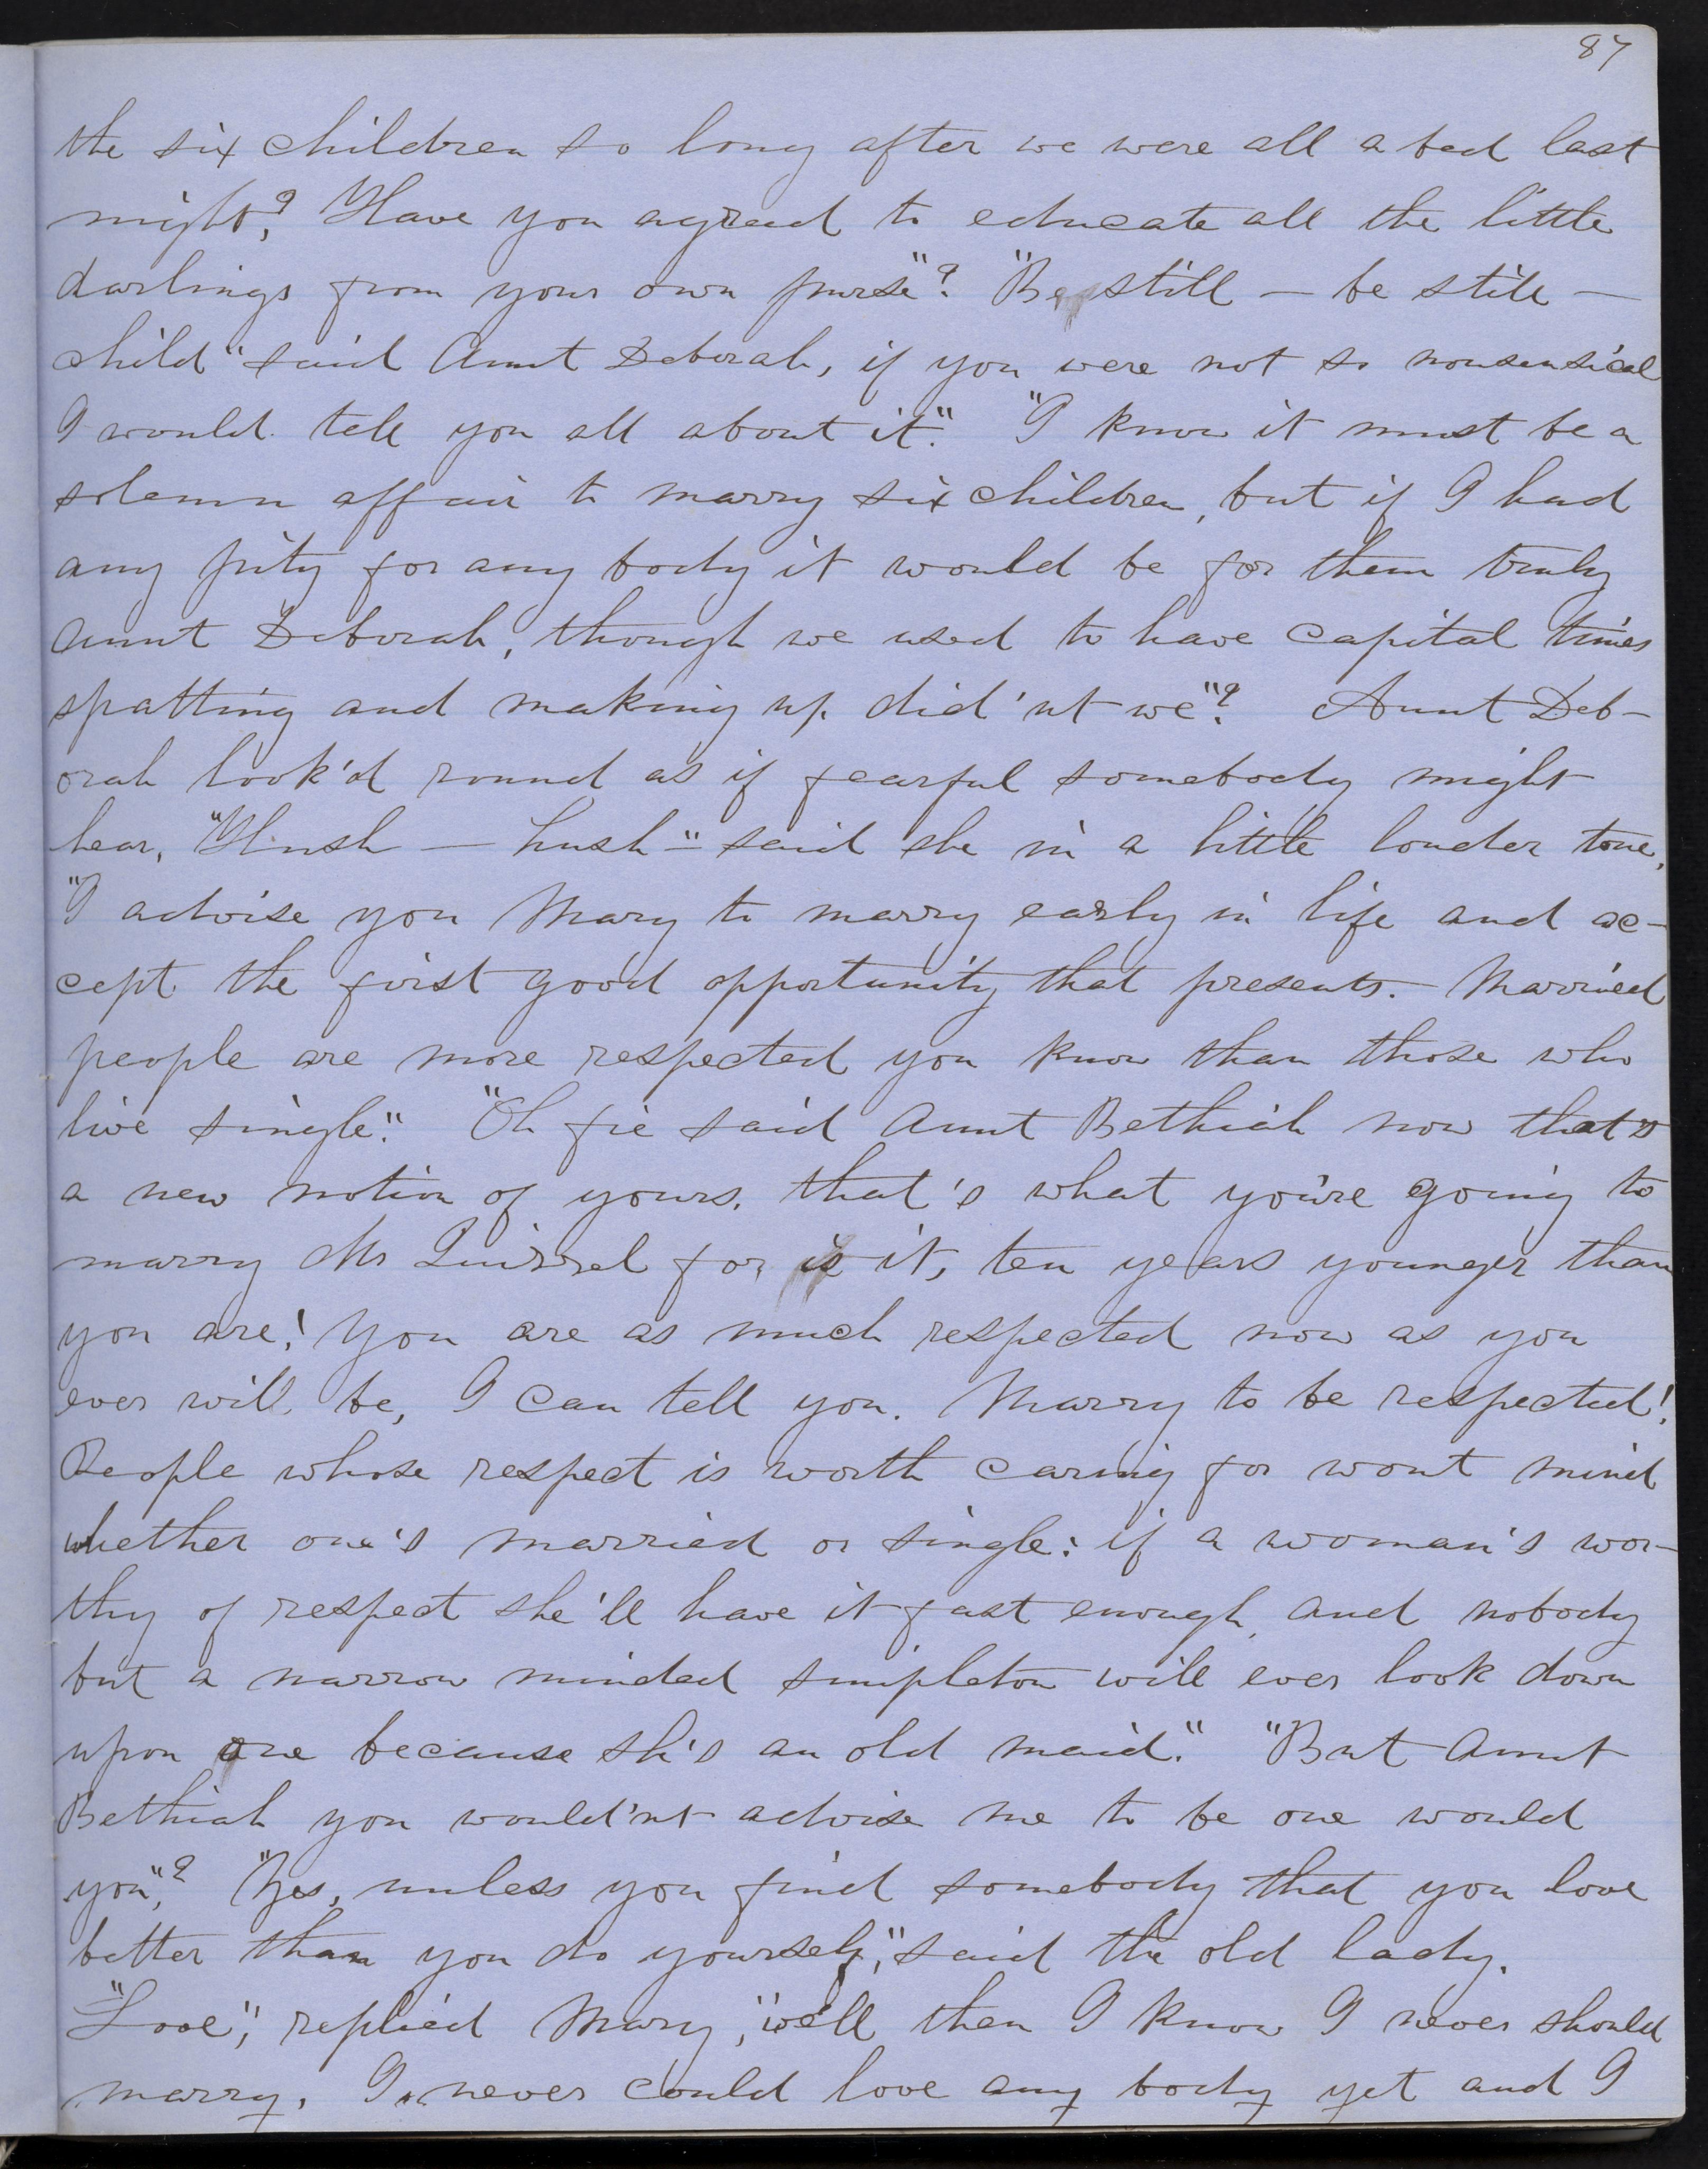 87
the six children so long after we were all a bed last
night,? Have you agreed to educate all the little
darlings from your own purse"? "Be still — be still —
child" said Aunt Deborah, if you were not so nonsensical
I would tell you all about it." "I know it must be a
solemn affair to marry six children, but if I had
any pity for any body it would be for them truly
Aunt Deborah, though we used to have capital times
spatting and making up did'nt we"? Aunt Deb-
orah look'd round as if fearful somebody might
hear, "Hush — hush" said she in a little louder tone,
"I advise you Mary to marry early in life and ac-
cept the first good opportunity that presents. Married
people are more respected you know than those who
live single." "Oh fie said Aunt Bethiah now that's
a new notion of yours, that's what you're going to
marry Mr Quirrel for is it, ten years younger than
you are! You are as much respected now as you
ever will be, I can tell you. Marry to be respected!
People whose respect is worth caring for wont mind
whether one's married or single: if a woman's wor-
thy of respect she'll have it fast enough, and nobody
but a narrow minded simpleton will ever look down
upon one because sh's an old maid." "But Aunt
Bethiah you would'nt advise me to be one would
you,"? "Yes, unless you find somebody that you love
better than you do yourself," said the old lady.
"Love," replied Mary, "well then I know I never should
marry. I never could love any body yet and I